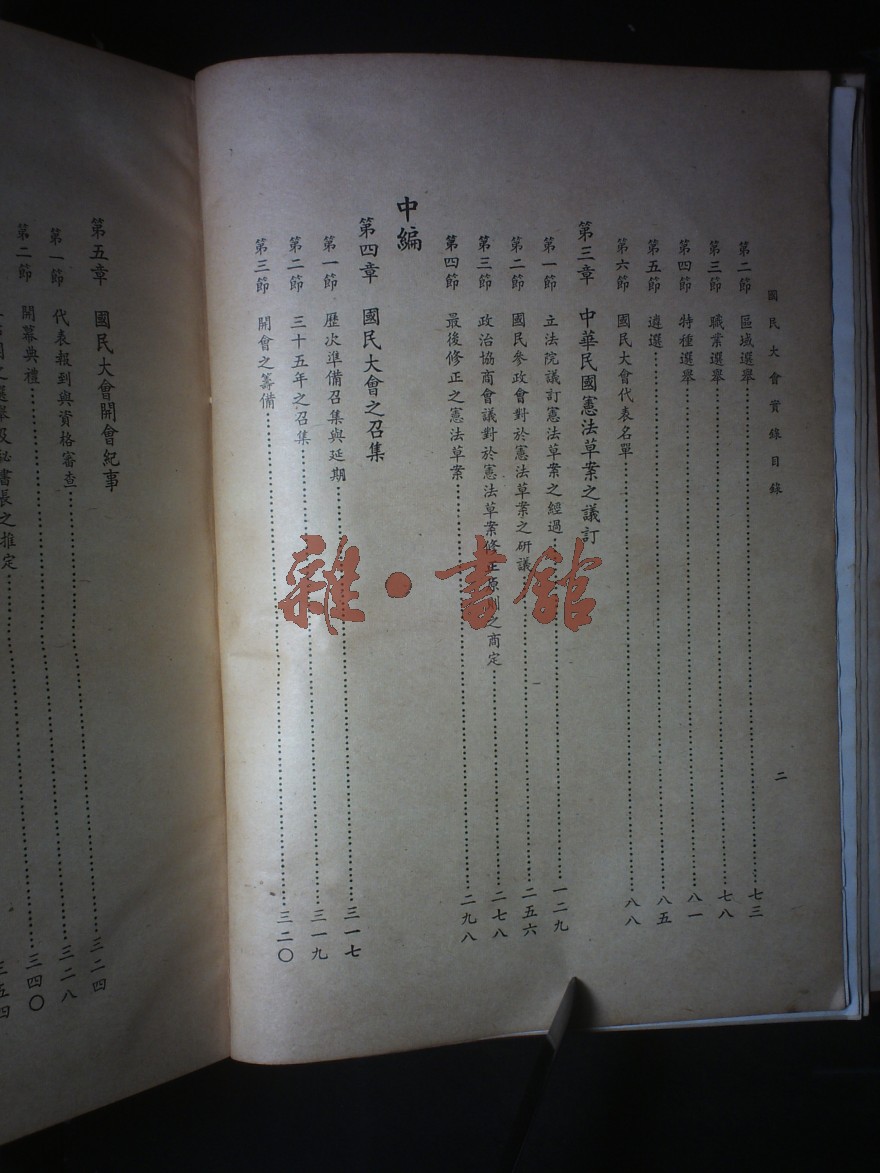 國民大會實錄目錄
二
第二節 區域選舉……七三
第三節 職業選舉……七八
第四節 特種選舉……八一
第五節 遴選……八五
第六節 國民大會代表名單……八八
第三章 中華民國憲法草案之議訂
第一節 立法院議訂憲法草案之經過……一二九
第二節 國民參政會對於憲法草案之研議……二五六
第三節 政治協商會議對於憲法草案修正原則之商定……二七八
第四節 最後修正之憲法草案……二九八
中編
第四章 國民大會之召集
第一節 歷次準備召集與延期……三一七
第二節 三十五年之召集……三一九
第三節 開會之籌備……三二〇
第五章 國民大會開會紀事……三二四
第一節 代表報到與資格審查……三二八
第二節 開幕典禮……三四〇
之選舉及秘書長之推定……三五四
雜·書館